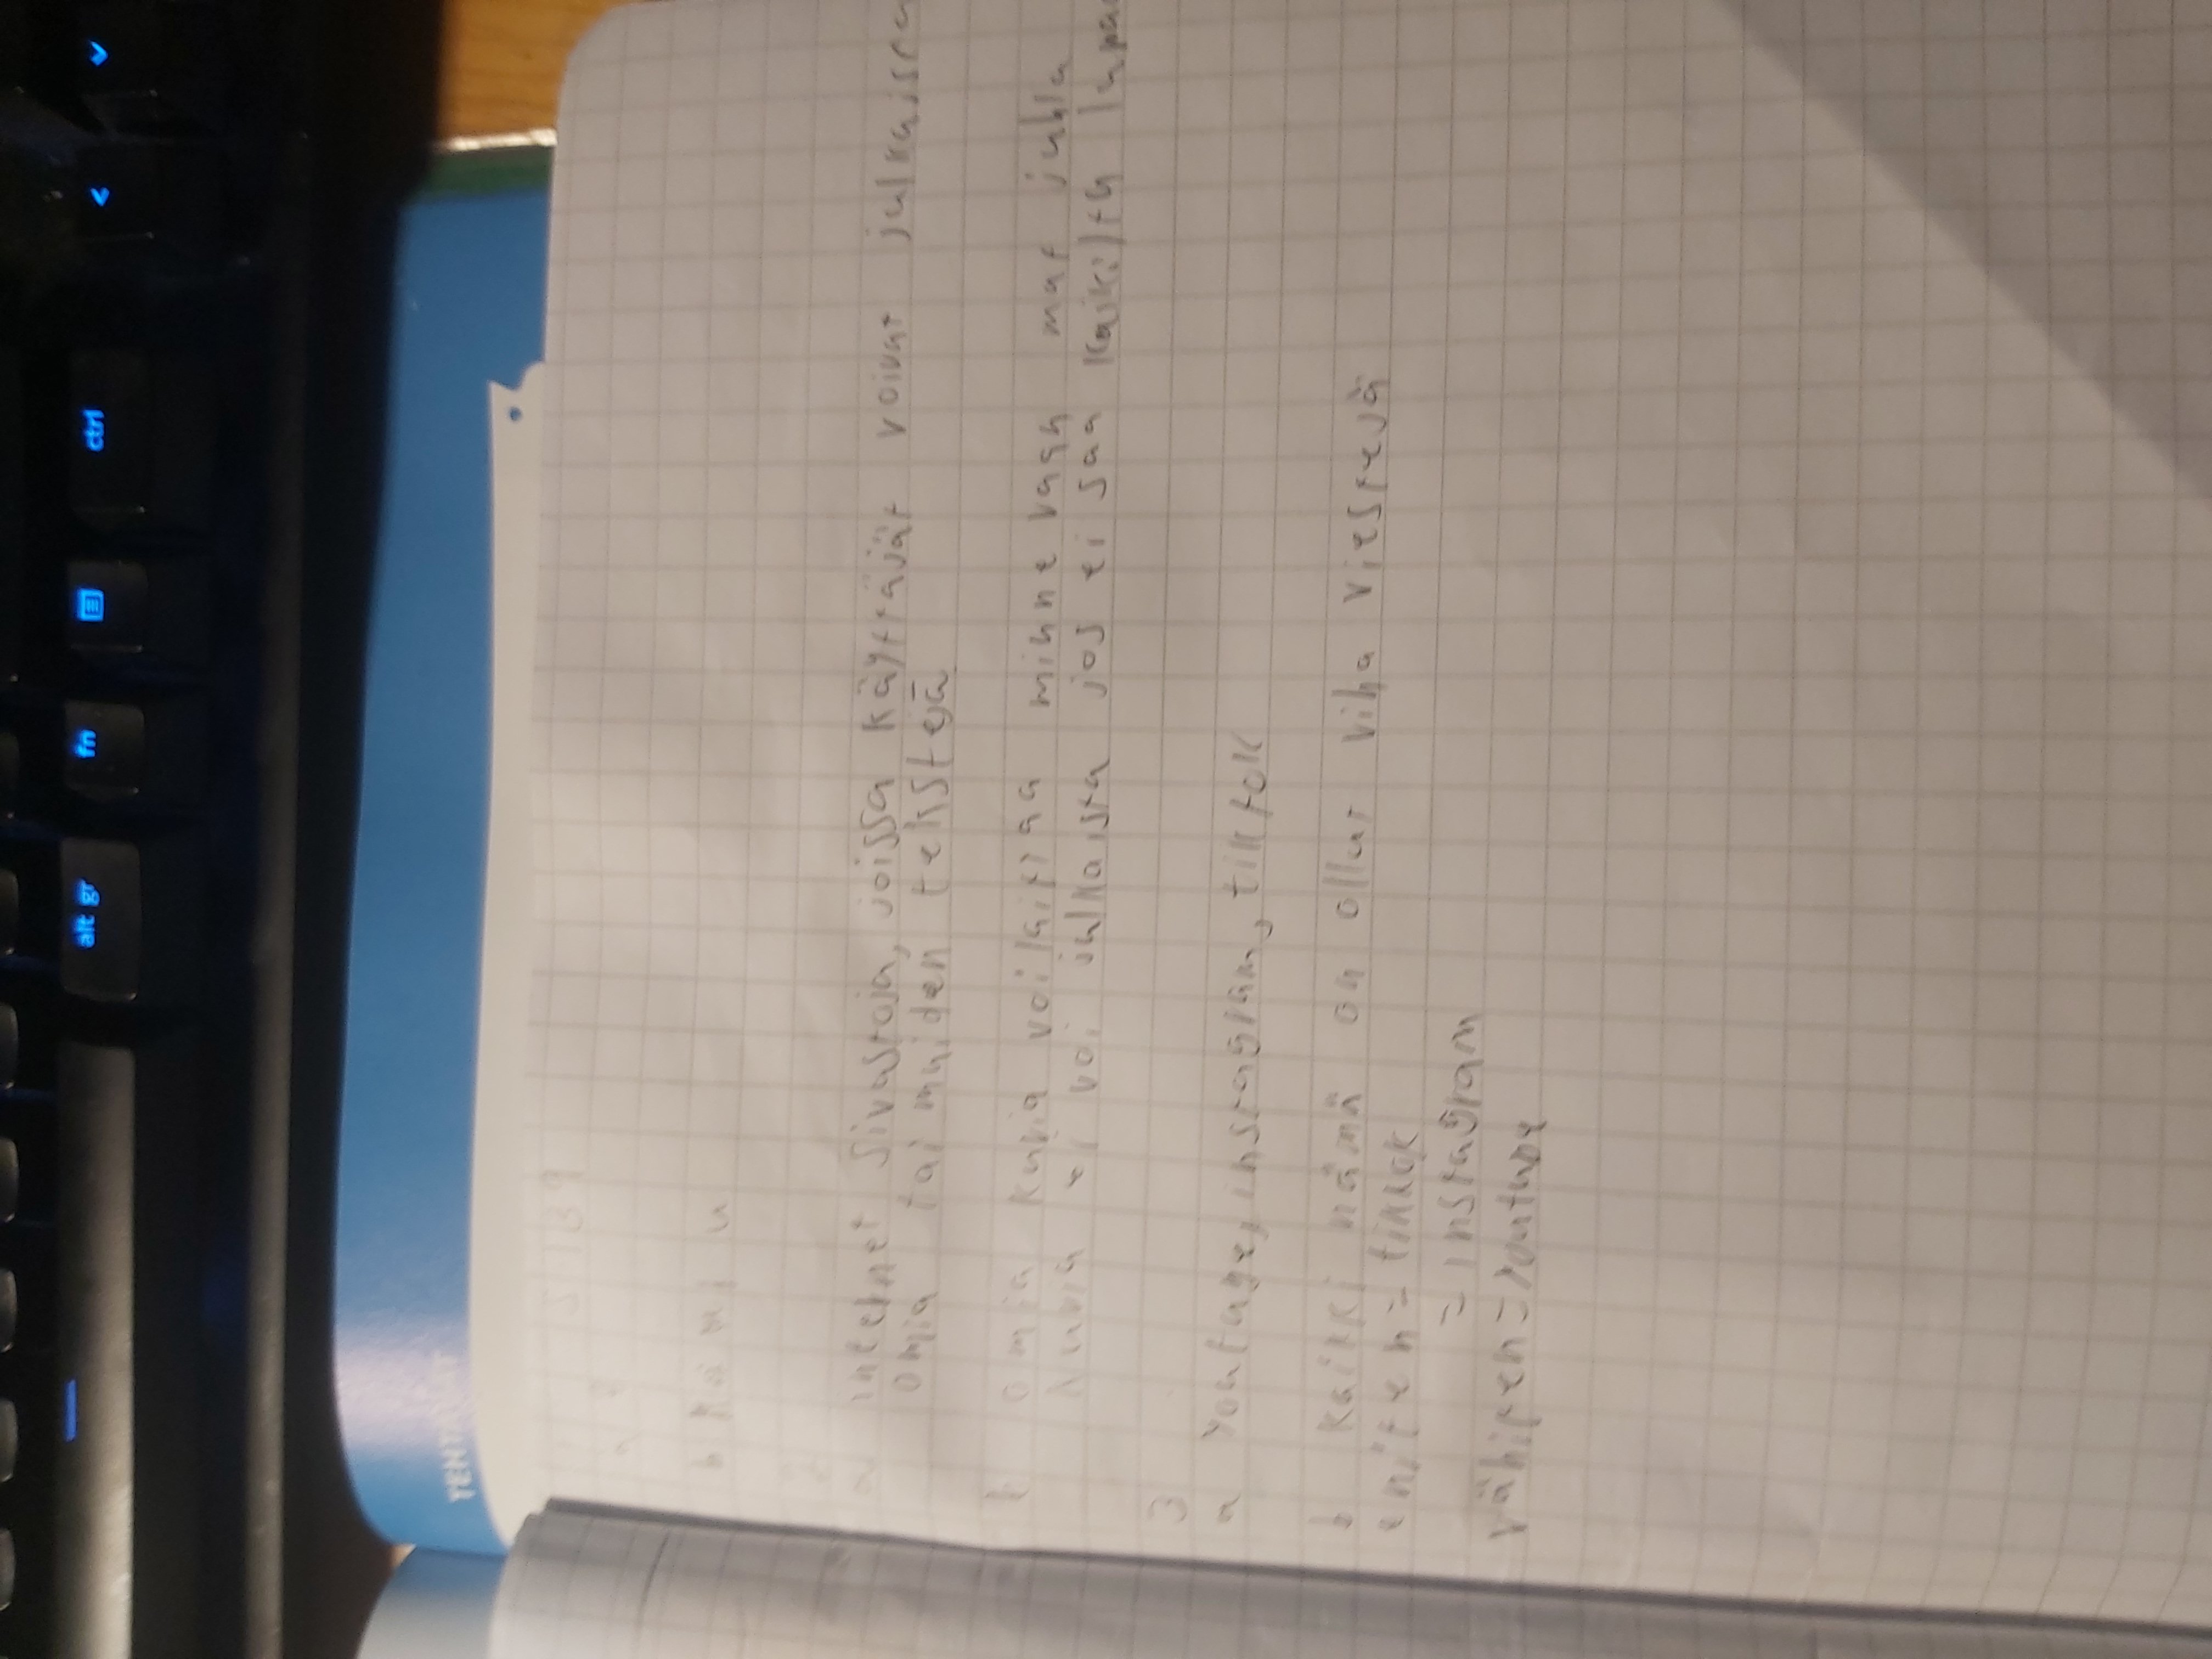 S 139
2
a internet sivustoja, joissa käyttäjät voivat julkaista
omia tai muiden tekstejä
b omia kuvia voi laittaa minne vaan mut juhla
kuvia ei voi julkaista jos ei saa kaikilta lupaa
3
a youtube, instagram, tiktok
b kaikki nämä on ollut viha viestejä
eniten = tiktok
= instagram
vähiten = youtube
ctrl
fn
alt gr